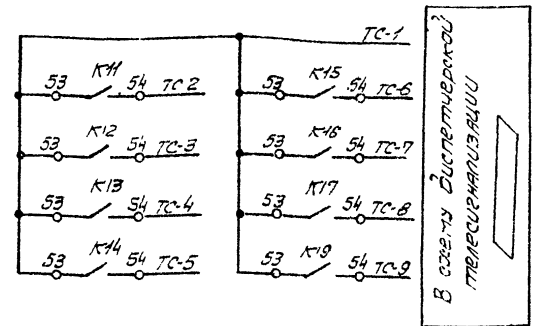 ТС-1
53 К11 54 ТС 2
53 К15 54 ТС-6
53 К12 54 ТС-3
53 К16 54 ТС-7
53 К13 54 ТС-4
53 К17 54 ТС-8
53 К14 54 ТС-5
53 К19 54 ТС-9
В схему диспетчерской
телесигнализации